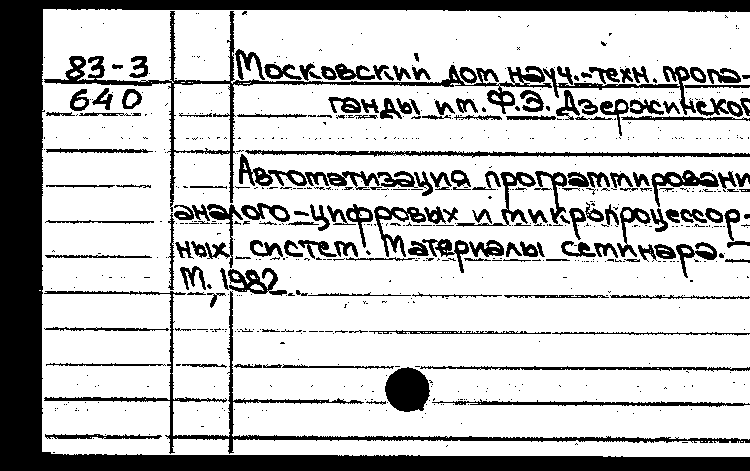 83-3 Московский дом науч.-техн. пропа-
640 ганды им. Ф.Э. Дзержинског
Автоматизация программировани
аналого-цифровых и микропроцессор-
ных систем. Материалы семинара. —
М., 1982.